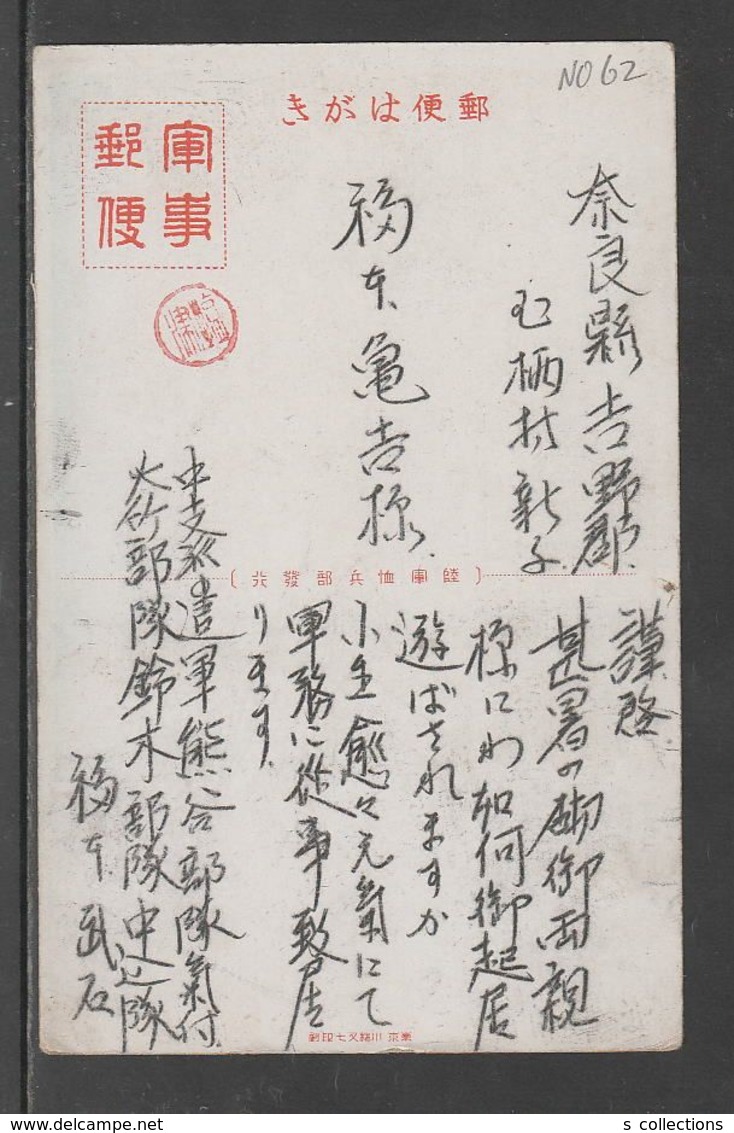 NO 62
郵便はがき
軍事
郵便
奈良縣吉野郡
玉栖村新子
福本亀吉様
〔陸軍恤兵部發行〕
謹啓
甚暑の砌御両親
様にわ如何御起居
遊ばされますか
小生愈々元氣にて
軍務に從事致居
ります
中支派遣軍熊谷部隊氣付
部隊鈴木部隊中込隊
福本武石
東京 川 又七印刷
s collections